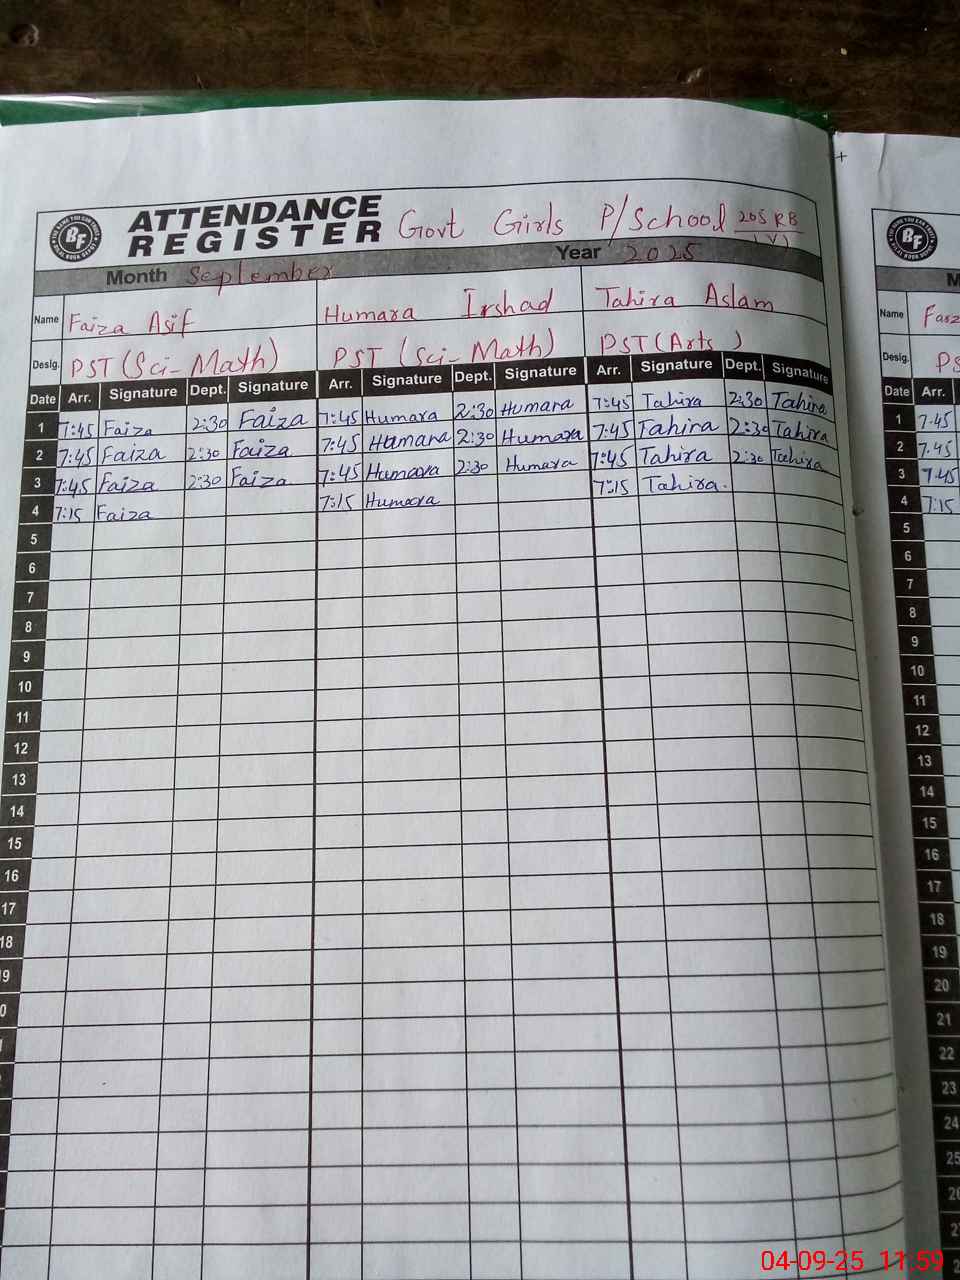 ATTENDANCE REGISTER Govt Girls P/School 205 RB (V)
Month September Year 2025
Name Faiza Asif Humara Irshad Tahira Aslam
Desig. PST (Sci-Math) PST (Sci-Math) PST (Arts)
Date Arr. Signature Dept. Signature Arr. Signature Dept. Signature Arr. Signature Dept. Signature
1 7:45 Faiza 2:30 Faiza 7:45 Humara 2:30 Humara 7:45 Tahira 2:30 Tahira
2 7:45 Faiza 2:30 Faiza 7:45 Humara 2:30 Humara 7:45 Tahira 2:30 Tahira
3 7:45 Faiza 2:30 Faiza 7:45 Humara 2:30 Humara 7:45 Tahira 2:30 Tahira
4 7:15 Faiza 7:15 Humara 7:15 Tahira.
5
6
7
8
9
10
11
12
13
14
15
16
17
18
BF
Name
Desig.
Date Arr.
1 7.45
2 7.45
3 7.45
4 7:15
5
6
7
8
9
10
11
12
13
14
15
16
17
18
19
20
21
22
23
24
25
04-09-25 11:59